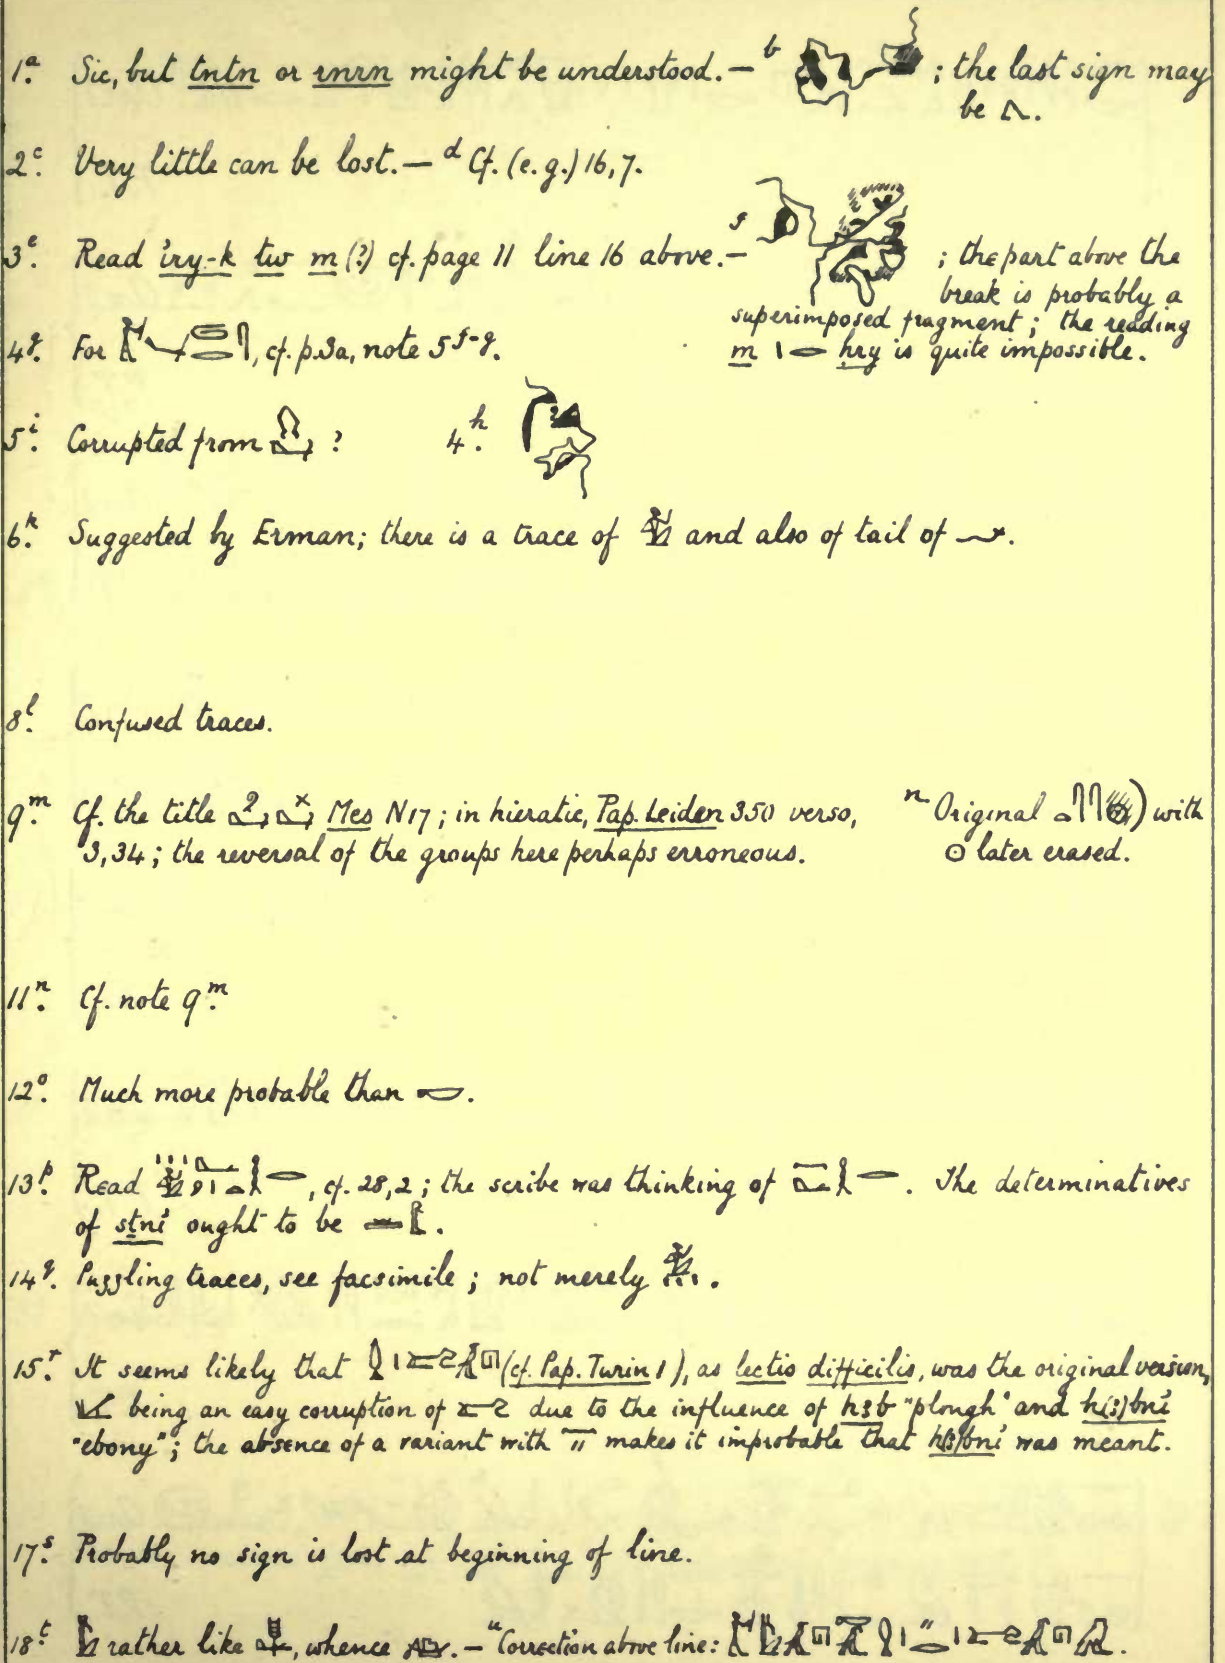 1ᵃ. Sic, but tntn or rnrn might be understood. — ᵇ ; the last sign may
be
2ᶜ. Very little can be lost. — ᵈ Cf. (e.g.) 16,7.
3ᵉ. Read iry-k tw m (?) cf. page 11 line 16 above. — ᶠ ; the part above the
break is probably a
superimposed fragment; the reading
m hry is quite impossible.
4ᵍ. For , cf. p. 3a, note 5ᶠ⁻ᵍ.
5ⁱ. Corrupted from ? 4ʰ.
6ᵏ. Suggested by Erman; there is a trace of and also of tail of .
8ˡ. Confused traces.
9ᵐ. Cf. the title Mes N17; in hieratic, Pap. Leiden 350 verso,
3,34; the reversal of the groups here perhaps erroneous.
ⁿ Original with
later erased.
11ⁿ. Cf. note 9ᵐ.
12ᵒ. Much more probable than .
13ᵖ. Read , cf. 28,2; the scribe was thinking of . The determinatives
of sṯni ought to be .
14ᑫ. Puzzling traces, see facsimile; not merely .
15ʳ. It seems likely that (cf. Pap. Turin 1), as lectio difficilis, was the original version,
being an easy corruption of due to the influence of hꜣb "plough" and h(ꜣ)bni
"ebony"; the absence of a variant with makes it improbable that h(ꜣ)bni was meant.
17ˢ. Probably no sign is lost at beginning of line.
18ᵗ. rather like , whence . — ᵘ Correction above line: .